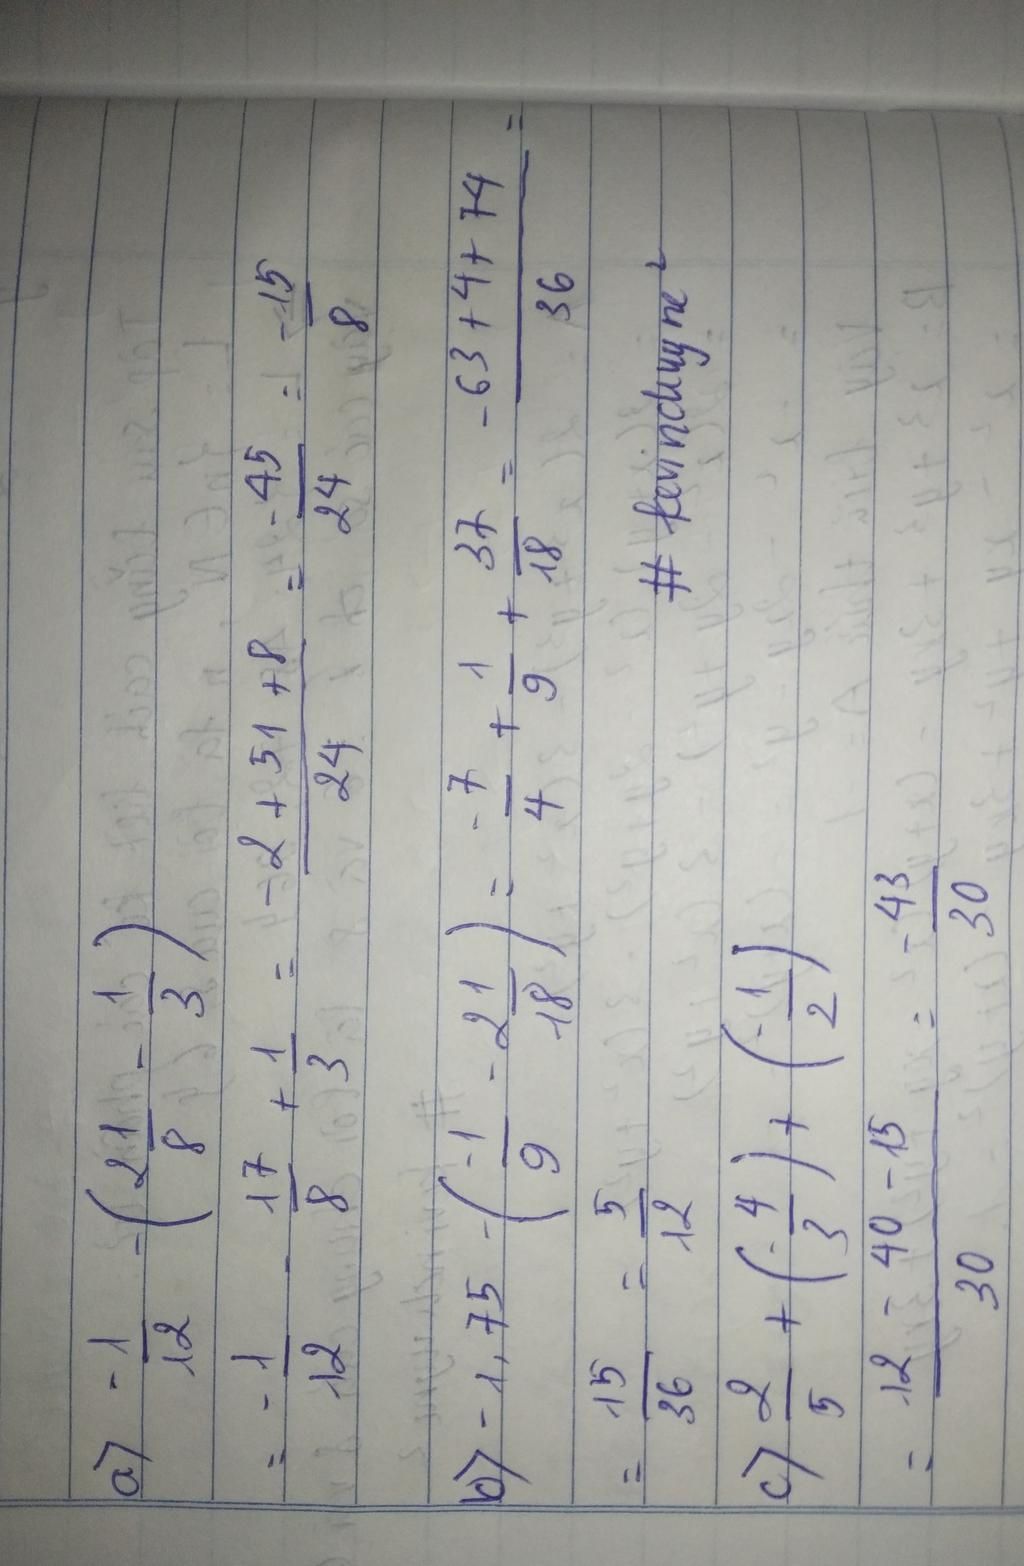 a) -1/12 - (2 1/8 - 1/3)
= -1/12 - 17/8 + 1/3 = -2 + 51 + 8/24 = -45/24 = -15/8
b) -1,75 - (-1/9 - 2 1/18) = -7/4 + 1/9 + 37/18 = -63 + 4 + 74/36 =
= 15/36 = 5/12
# kevinchuyne
c) 2/5 + (-4/3) + (-1/2)
= 12 - 40 - 15/30 = -43/30